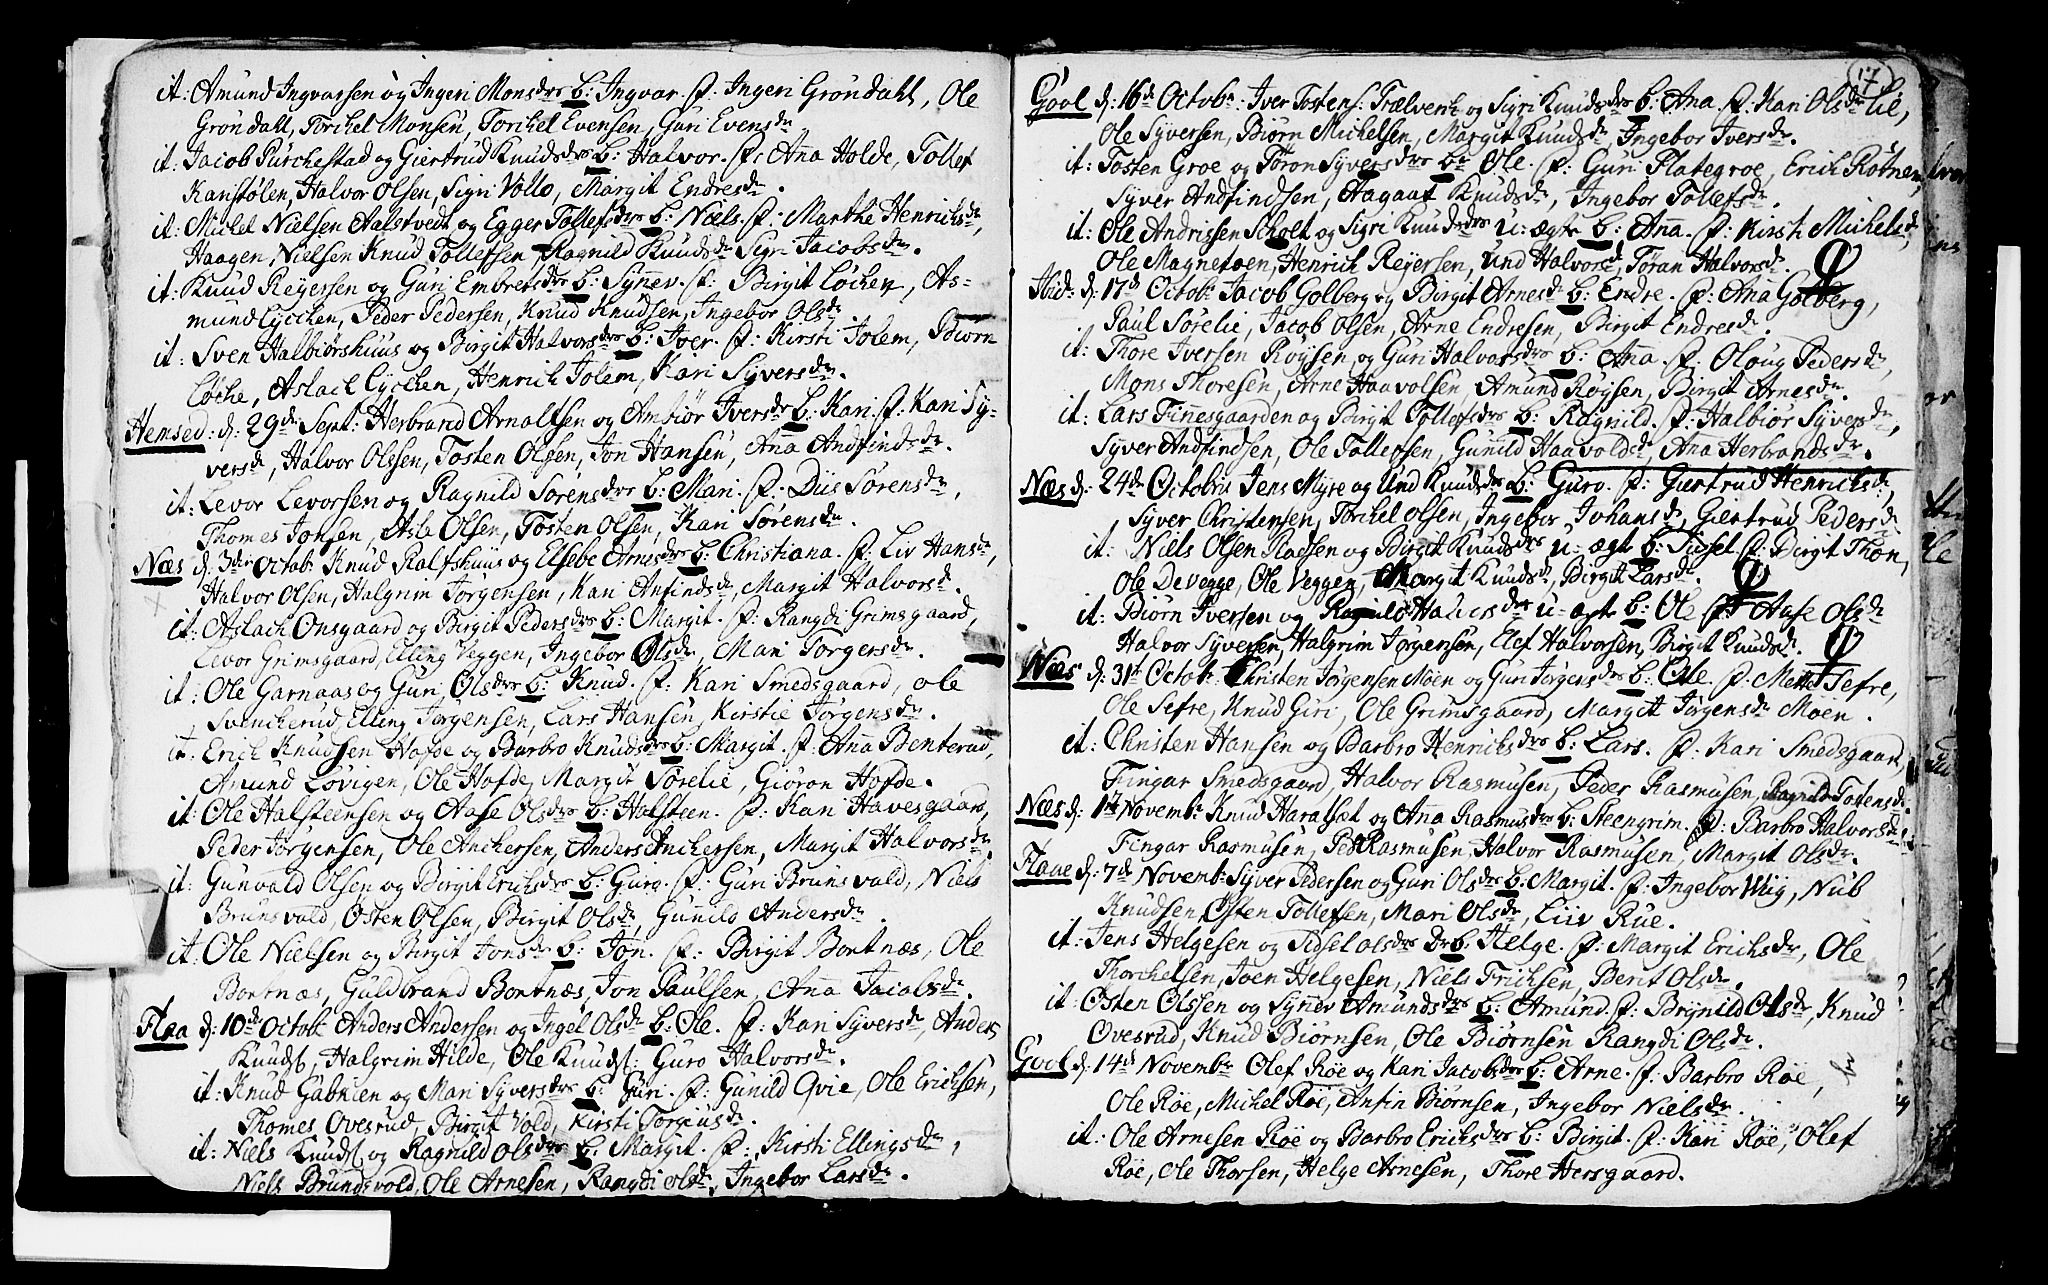 it: Amund Ingvarsen og Ingeri Monsdrs b: Ingvar. f: Ingeri Grøndahl, Ole
Grøndall, Torchel Monsen, Torchel Evensen, Guri Evensdr
it: Jacob Purchestad og Giertrud Knudsdrs b: Halvor. f: Anna Holde, Tollef
Kanstølen, Halvor Olsen, Sigri Vollo, Margit Endresdr.
it: Michel Nielsen Halstvedt og Egger Tollefsdrs b: Niels. f: Marthe Henrichsdr,
Haagen Nielsen Knud Tollefsen, Ragnild Knudsdr Sigri Jacobsdr.
it: Knud Reyersen og Guri Embretsdrs b: Synev. f: Birgit Løchen, As-
mund Lycchen, Peder Pedersen, Knud Knudsen, Ingebor Olsdr
it: Sven Halbiørshuus og Birgit Halvorsdrs b: Iver. f: Kirsti Jolem, Biørn
Løche, Aslach Lycchen, Henrich Jolem, Kari Syversdr.
Hemsed: d: 29de Sept: Herbrand Arnaltsen og Ambiør Iversdr b: Kari. f: Kari Sy-
versd, Halvor Olssen, Tosten Olsen, Jon Hansen, Anna Andfindsdr.
it: Levor Levorsen og Ragnild Sørensdrs b: Mari. f: Diis Sørensdr,
Thomes Jonsen, Asle Olsen, Tosten Olsen, Kari Sørensdr.
Næs d. 3die Octob. Knud Ralfshuus og Elsebe Arnesdrs b: Christiana. f: Liv Hansdr,
Halvor Olsen, Halgrim Jørgensen, Kari Anfindsd, Margit Halvorsd.
it: Aslach Onsgaard og Birgit Pedersdrs b: Margit. f: Rangdi Grimsgaard,
Levor Grimsgaard, Elling Veggen, Ingebor Olsdr, Mari Torgersdr.
it: Ole Garnaas og Guri Olsdrs b: Knud. f: Kari Smedsgaard, Ole
Svencherud, Elling Jørgensen, Lars Hansen, Kirstie Jørgensdr.
it: Erich Knudsen Hofde og Barbro Knudsdrs b: Margit. f: Anna Benterud,
Amund Løvigen, Ole Hofde, Margit Sørelie, Giøron Hofde.
it: Ole Halsteensen og Aase Olsdrs b: Halsteen. f: Kari Havesgaard,
Peder Jørgensen, Ole Anchersen, Anders Anchersen, Margit Halvorsdr.
it: Gunvald Olsen og Birgit Erichsdrs b: Guro. f: Guri Brunsvald, Niels
Brunsvald, Østen Olsen, Birgit Olsdr, Gunild Andersdr.
it: Ole Nielsen og Birgit Jonsdr b: Jon. f: Birgit Bortnæs, Ole
Bortnæs, Guldbrand Bortnæs, Jon Paulsen, Anna Jacobsdr.
Flaa d: 10de Octobr Anders Andersen og Ingel Olsdr b: Ole. f: Kari Syversdr, Anders
Knuds, Halgrim Hilde, Ole Knuds: Guro Halvorsdr.
it: Knud Gabrien og Mari Syversdrs b: Guri. f: Gunild Qvie, Ole Erichsen,
Thomes Ovesrud, Birgit Vold, Kirsti Torgiusdr.
it: Niels Knuds og Ragnild Olsdrs b. Margit. f: Kirsti Ellingsdr,
Niels Brundsvold, Ole Arnesen, Rangdi Olsdr, Ingebor Larsdr.
17
Gool d: 16d Octobr: Iver Tostens: Trælvenh og Sigri Knudsdrs b: Ana. f: Kari Olsdr Lie,
Ole Syversen, Biørn Michelsen, Margit Knudsdr, Ingebor Iversdr.
it: Tosten Groe og Tøron Syversdrs b: Ole. f: Guri Plategroe, Erich Rotnem
Syver Andfindsen, Aagaat Knudsdr, Ingebor Tollefsdr.
it: Ole Andrissen Scholt og Sigri Knudsdrs u: ægte b: Anna. f: Kirsti Michelsd,
Ole Magnetoen, Henrich Reyersen, Und Halvorsd, Tøran Halvorsdr.
Ibid: d: 17d Octobr Jacob Golberg og Birgit Arnesd b: Endre. f: Ana Golberg,
Paul Sørelie, Jacob Olsen, Arne Endresen, Birgit Endresdr.
it: Thore Iversen Røysen og Guri Halvorsdrs b: Anna. f: Oloug Pedersdr,
Mons Thoresen, Arne Haavolsen, Amund Røysen, Birgit Arnesdr.
it: Lars Finnesgaarden og Birgit Tollefsdrs b: Ragnild. f: Halbiør Syversdr,
Syver Andfindsen, Ole Tollefsen, Gunild Haavoldsd, Ana Herbrandsdr.
Næs d: 24de Octobris Jens Myre og Und Knudsdrs b: Guro. f: Giertrud Henrichsd,
Syver Christensen, Torchel Olsen, Ingebor Johansd, Giertrud Pedersd
it: Niels Olsen Raesen og Birgit Knudsdrs u: ægt b: Sidsel f: Birgit Thon,
Ole DeVegge, Ole Veggen, Margit Knudsd, Birgit Larsd.
it: Biørn Iversen og Ragnild Halvorsdrs u-ægte b: Ole f: Aase Olsdr
Halvor Syversen, Halgrim Jørgensen, Elef Halvorsen, Birgit Knudsd.
Næs d: 31te Octobr. Christen Jørgensen Moen og Guri Jørgensdrs b: Ole. f: Mette Sefre,
Ole Sefre, Knud Giri, Ole Grimsgaard, Margit Jørgensdr Moen.
it: Christen Hansen og Barbro Henrichsdrs b: Lars. f: Kari Smedsgaard,
Fingar Smedsgaard, Halvor Rasmusen, Peder Rasmusen, Ragnild Tostensd.
Næs d: 1te Novembr Knud Haralset og Anna Rasmusdrs b: Steengrim. f: Barbro Halvorsdr,
Fingar Rasmusen, Ped Rasmusen, Halvor Rasmusen, Margit Olsdr.
Flaae d: 7de Novembr Syver Pedersen og Guri Olsdrs b: Margit. f: Ingebor Wiig, Nub
Knudsen, Østen Tollefsen, Mari Olsdr, Liiv Rue.
it: Jens Helgesen og Sidsel Olsdrs b. Helge. f: Margit Erichsdr, Ole
Thorchelsen, Joen Helgesen, Niels Erichsen, Berit Olsdr.
it: Østen Olssen og Synev Amundsdrs b: Amund. f: Brynild Olsdr, Knud
Ovesrud, Knud Biørnsen, Ole Biørnsen Rangdi Olsdr.
Gool d: 14de Novembr Olef Røe og Kari Jacobsdrs b: Arne. f: Barbro Røe,
Ole Røe, Michel Røe, Anfin Biørnsen, Ingebor Nielsdr.
it: Ole Arnesen Røe og Barbro Erichsdrs b: Birgit. f: Kari Røe, Olef
Røe, Ole Thorsen, Helge Arnesen, Thore Hersgaard.